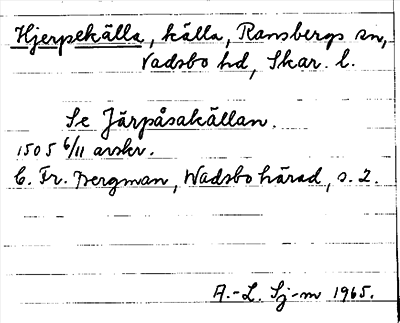 Hjerpekälla, källa, Ransbergs sn,
Vadsbo hd, Skar. l.
Se Järpåsakällan.
1505 6/11 avskr.
C. Fr. Bergman, Wadsbo härad, s. 2.
A.-L. Sj-m 1965.